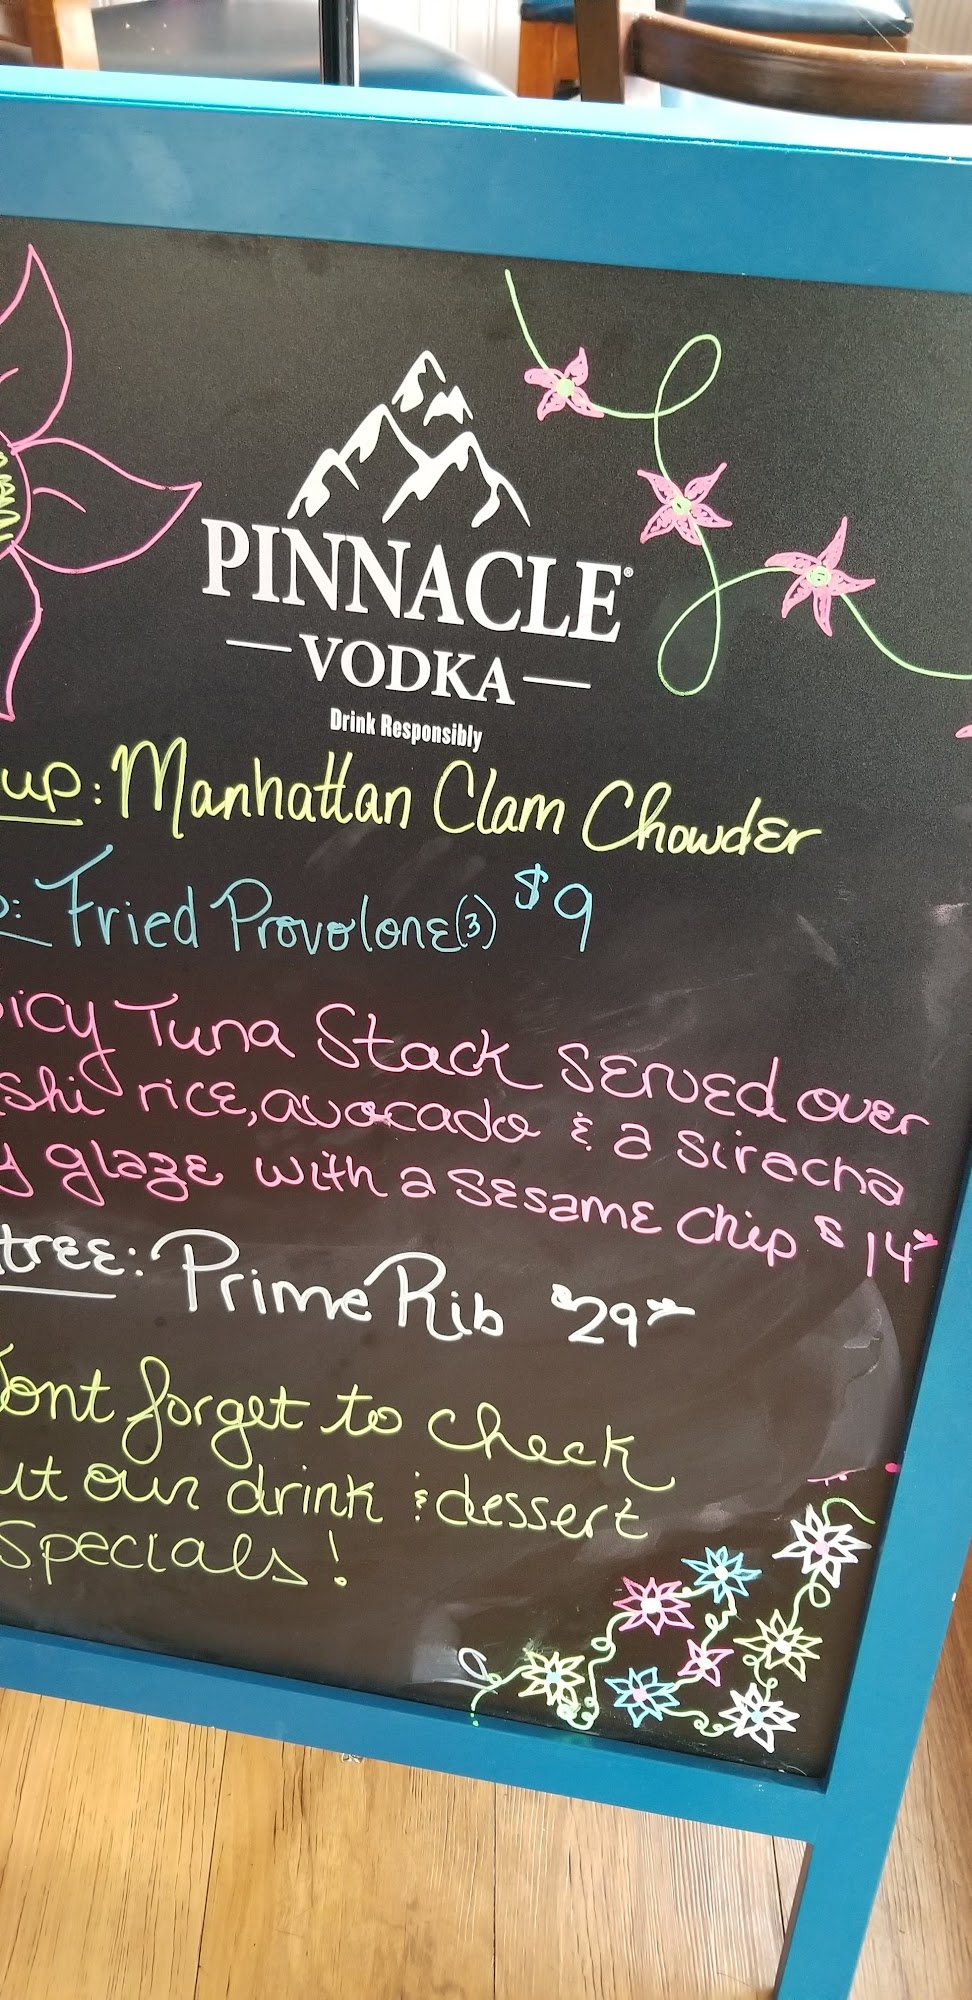 PINNACLE®
VODKA
Drink Responsibly
up: Manhattan Clam Chowder
p: Fried Provolone (3) $9
icy Tuna Stack served over
shi rice, avocado & a siracha
y glaze with a sesame chip $14
tree: Prime Rib $29
ont forget to check
ut our drink & dessert
Specials!